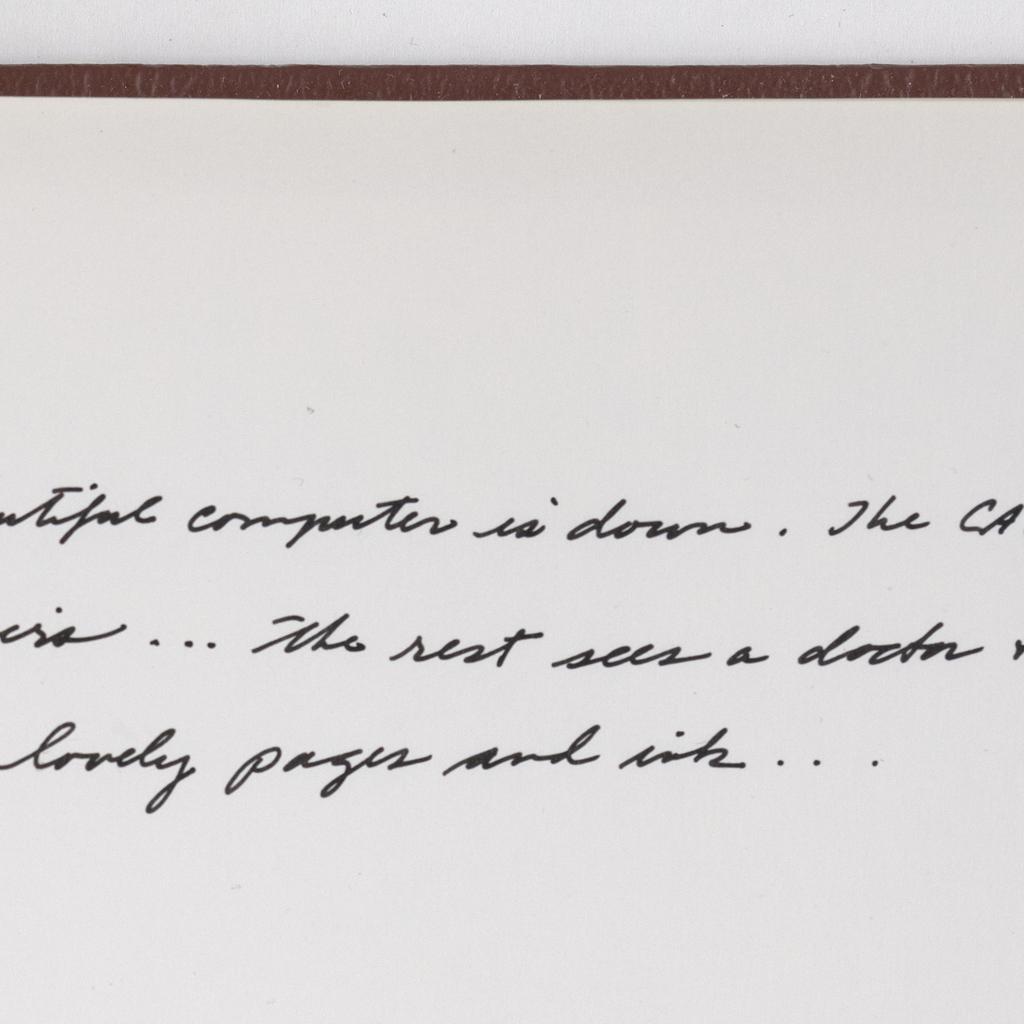 utiful computer is down. The CA
ers ... The rest sees a doctor
lovely pages and ink ...